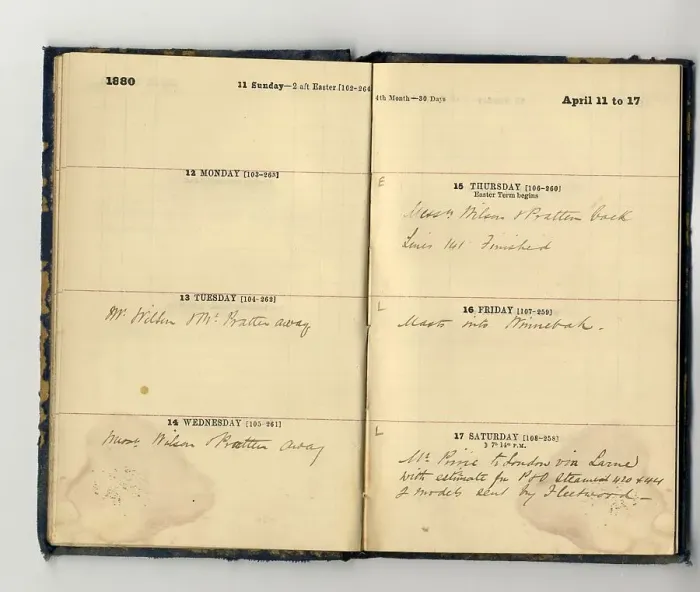 1880
11 Sunday—2 aft Easter [102-264
12 MONDAY [103-263]
13 TUESDAY [104-262]
Mr. Wilson & Mr. Pratten away
14 WEDNESDAY [105-261]
Messrs Wilson & Pratten away
4th Month—30 Days
April 11 to 17
E
15 THURSDAY [106-260]
Easter Term begins
Messrs Wilson & Pratten back
Lines 141 Finished
L
16 FRIDAY [107-259]
Masts into Winnebah.
L
17 SATURDAY [108-258]
P.M.
Mr. Pirrie to London via Larne
with estimate for P&O Steamers 420 x 44
2 models sent by Fleetwood—